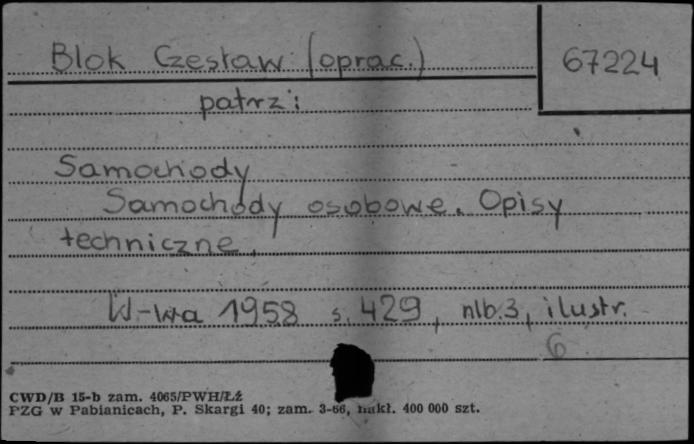 Blok Czesław (oprac.)
67224
patrz:
Samochody
Samochody osobowe. Opisy
techniczne.
W-wa 1958 s. 429, nlb. 3, ilustr.
6
CWD/B 15-b zam. 4065/PWH/Łź
PZG w Pabianicach, P. Skargi 40; zam. 3-66, nakł. 400 000 szt.